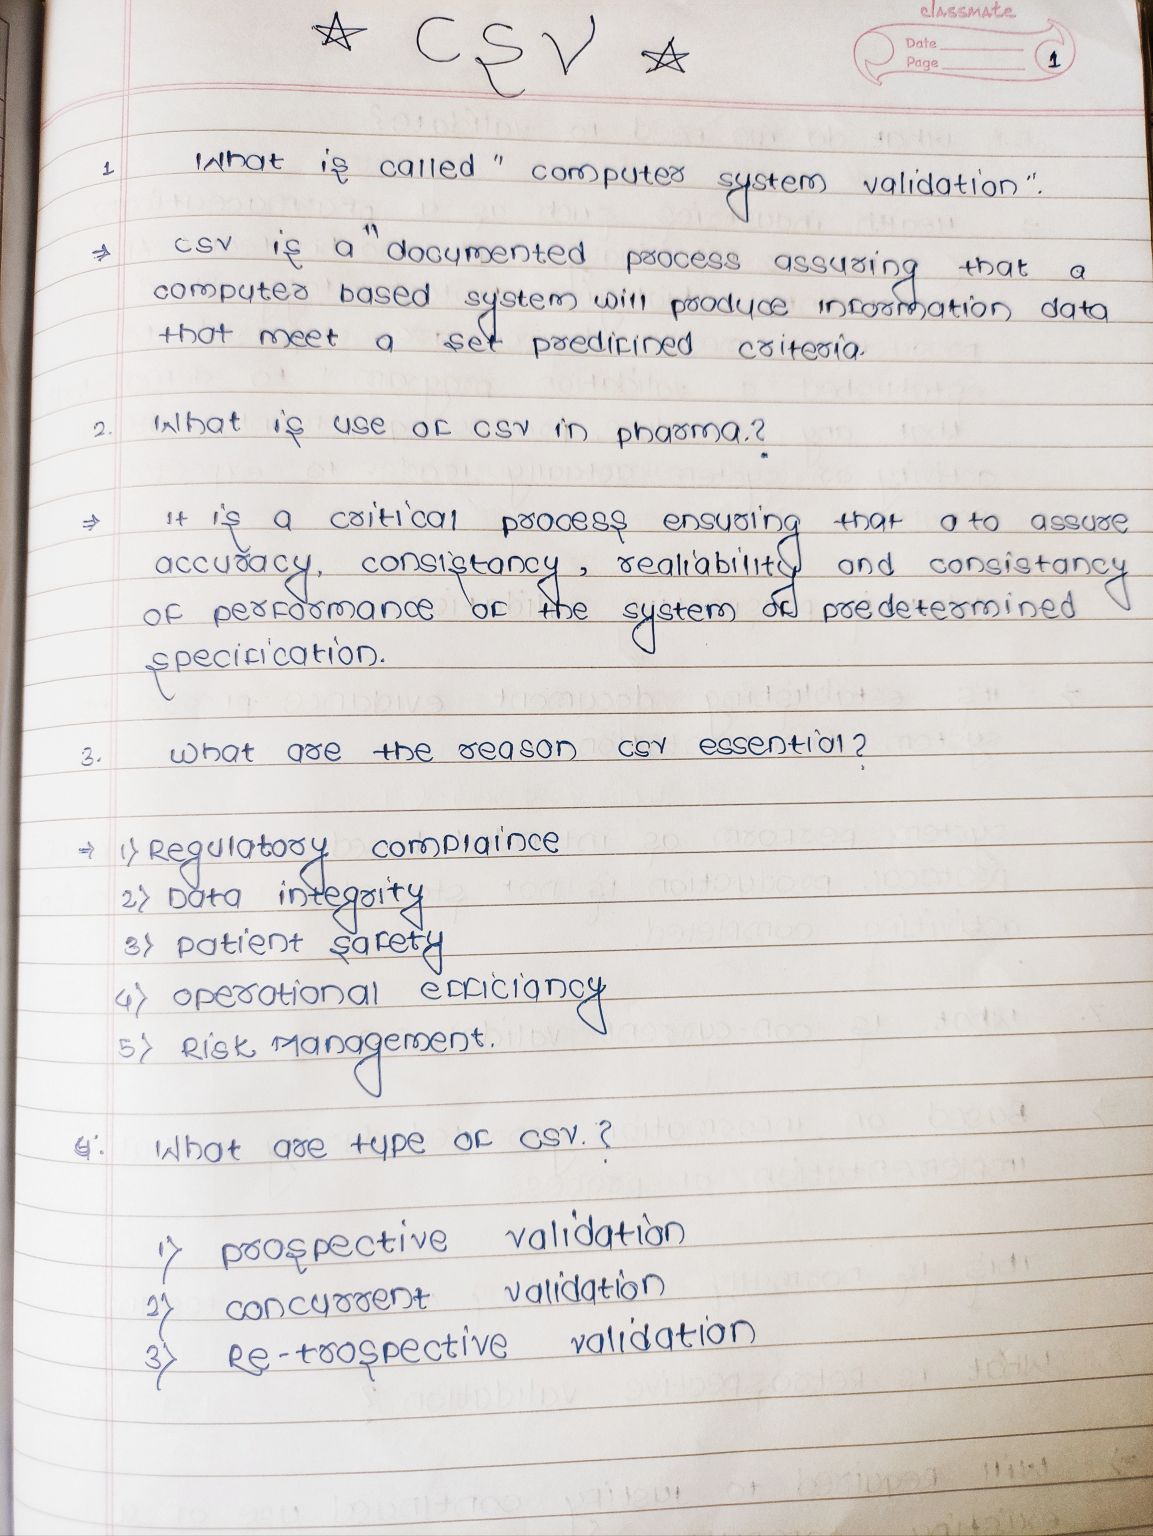 classmate
Date
Page
1
☆ CSV ☆
1 What is called " computer system validation".
⇒ CSV is a "documented process assuring that a
computer based system will produce information data
that meet a set predifined criteria.
2. What is use of CSV in pharma.?
⇒ It is a critical process ensuring that a to assure
accuracy, consistancy, realiability and consistancy
of performance of the system of predetermined
specification.
3. What are the reason CSV essential?
⇒ 1) Regulatory complaince
2) Data integrity
3) patient safety
4) operational efficiancy
5) Risk Management.
4. What are type of CSV.?
1) prospective validation
2) concurrent validation
3) Re-trospective validation